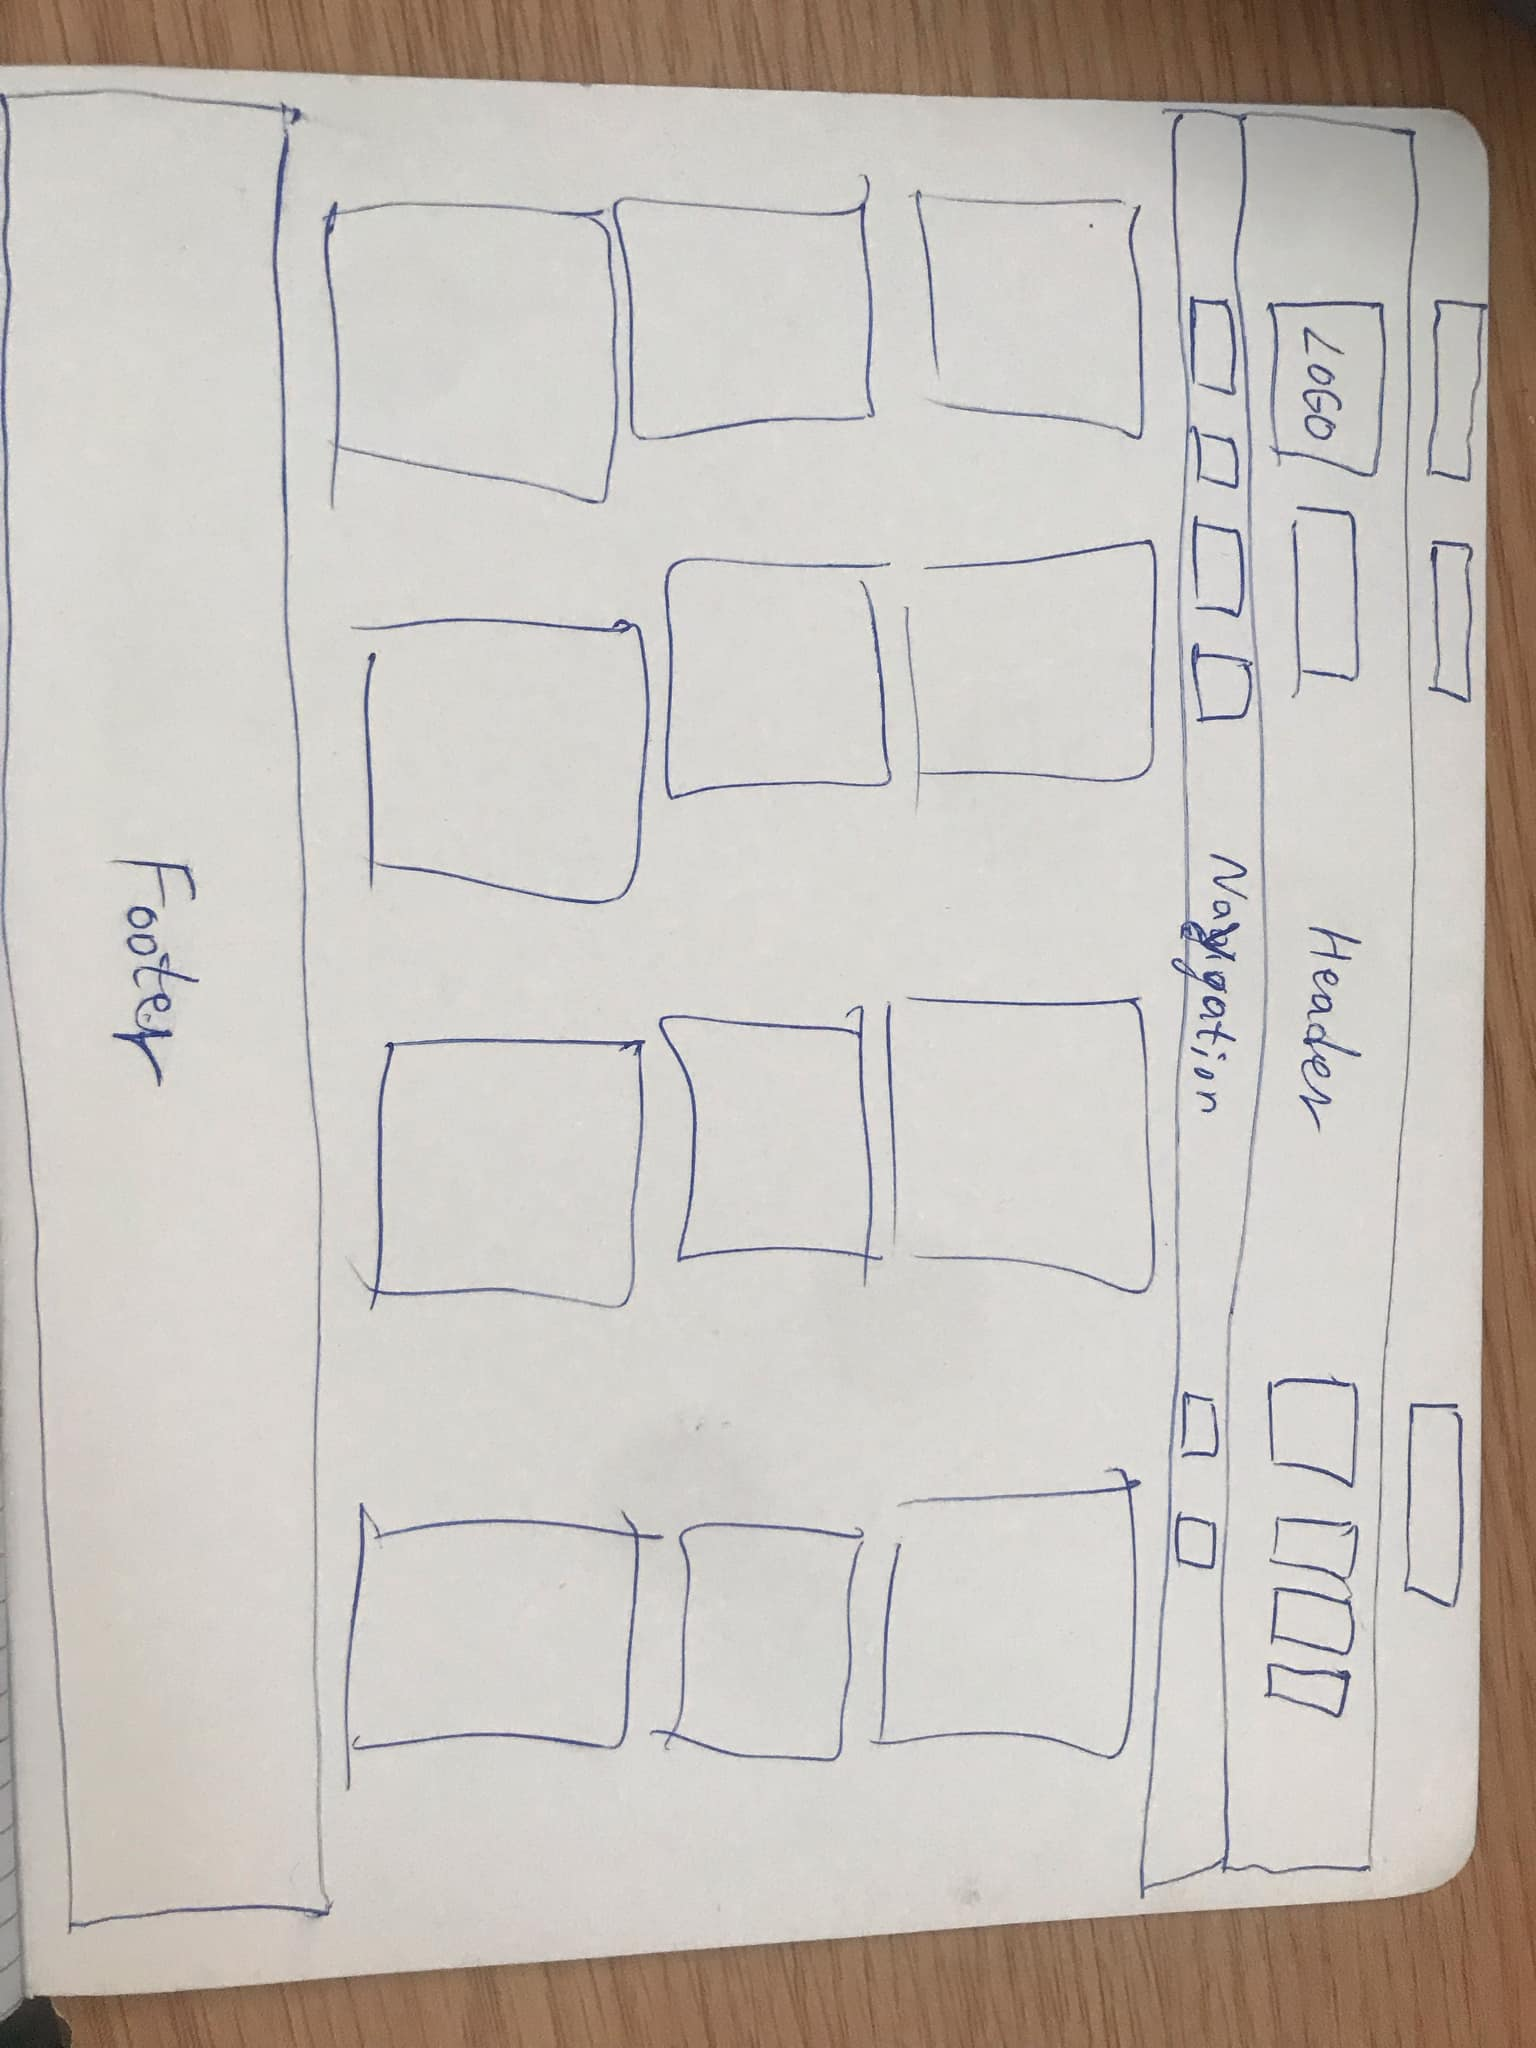 LOGO
Header
Navigation
Footer